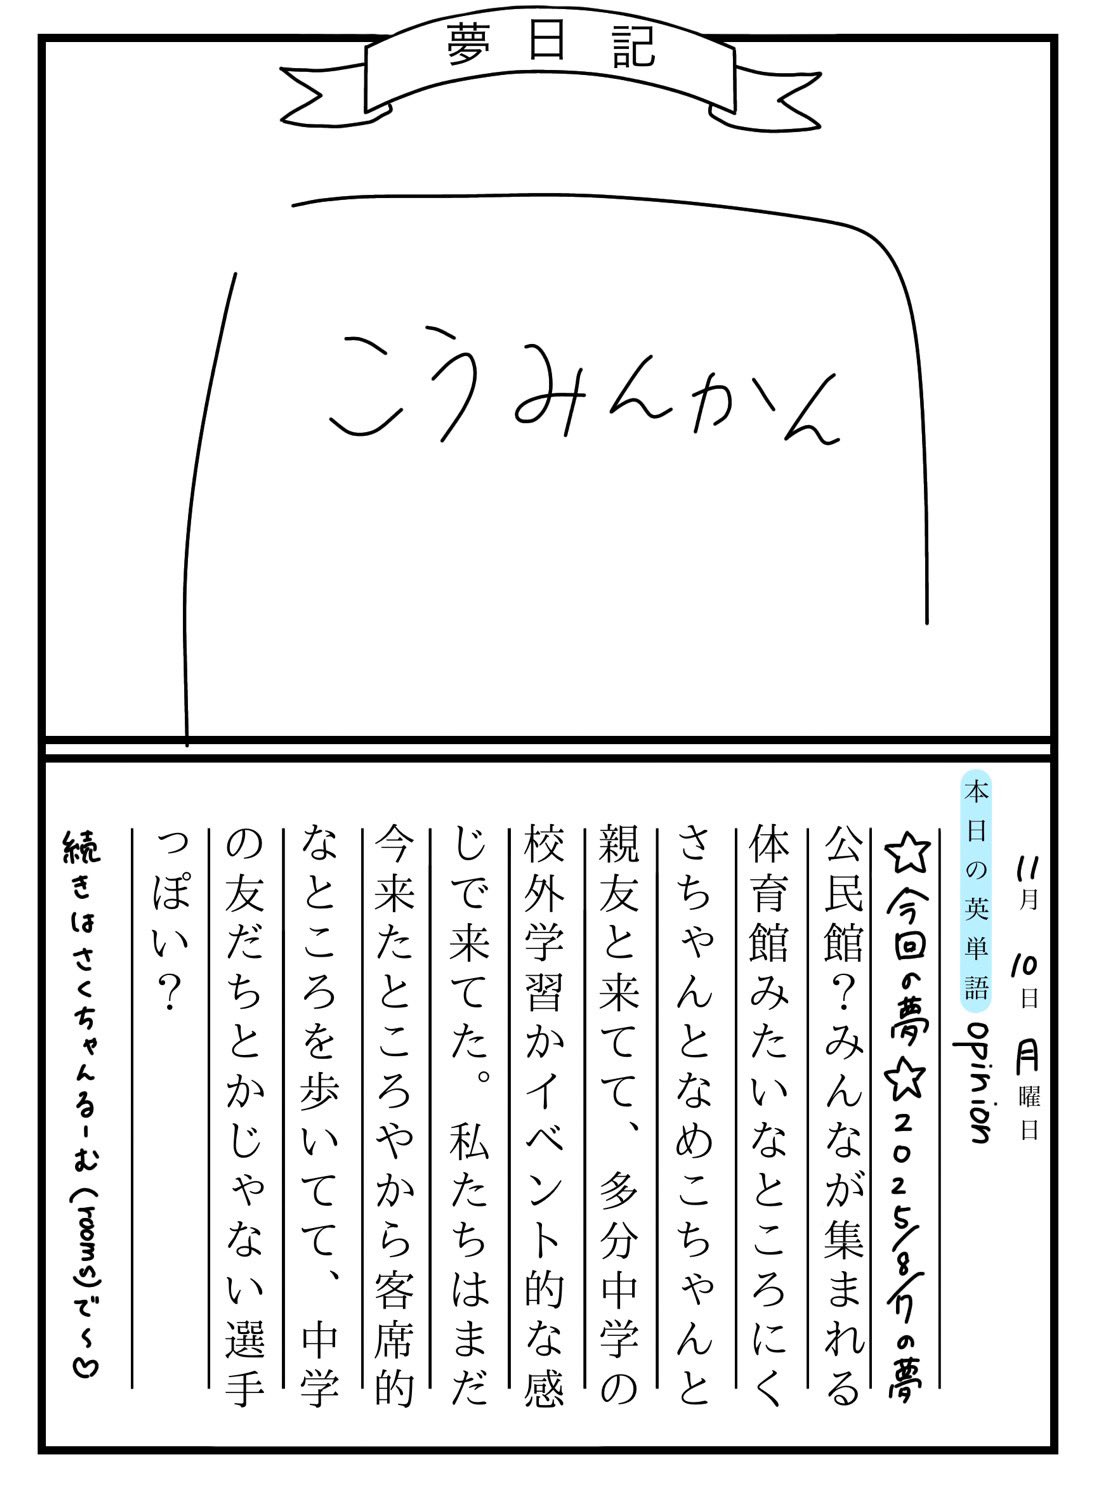 夢日記
こうみんかん
11月 10日 月曜日
本日の英単語 opinion
☆今回の夢☆2025/8/17の夢
公民館？みんなが集まれる
体育館みたいなところにく
さちゃんとなめこちゃんと
親友と来てて、多分中学の
校外学習かイベント的な感
じで来てた。私たちはまだ
今来たところやから客席的
なところを歩いてて、中学
の友だちとかじゃない選手
っぽい？
続きはさくちゃんるーむ(rooms)で〜♡